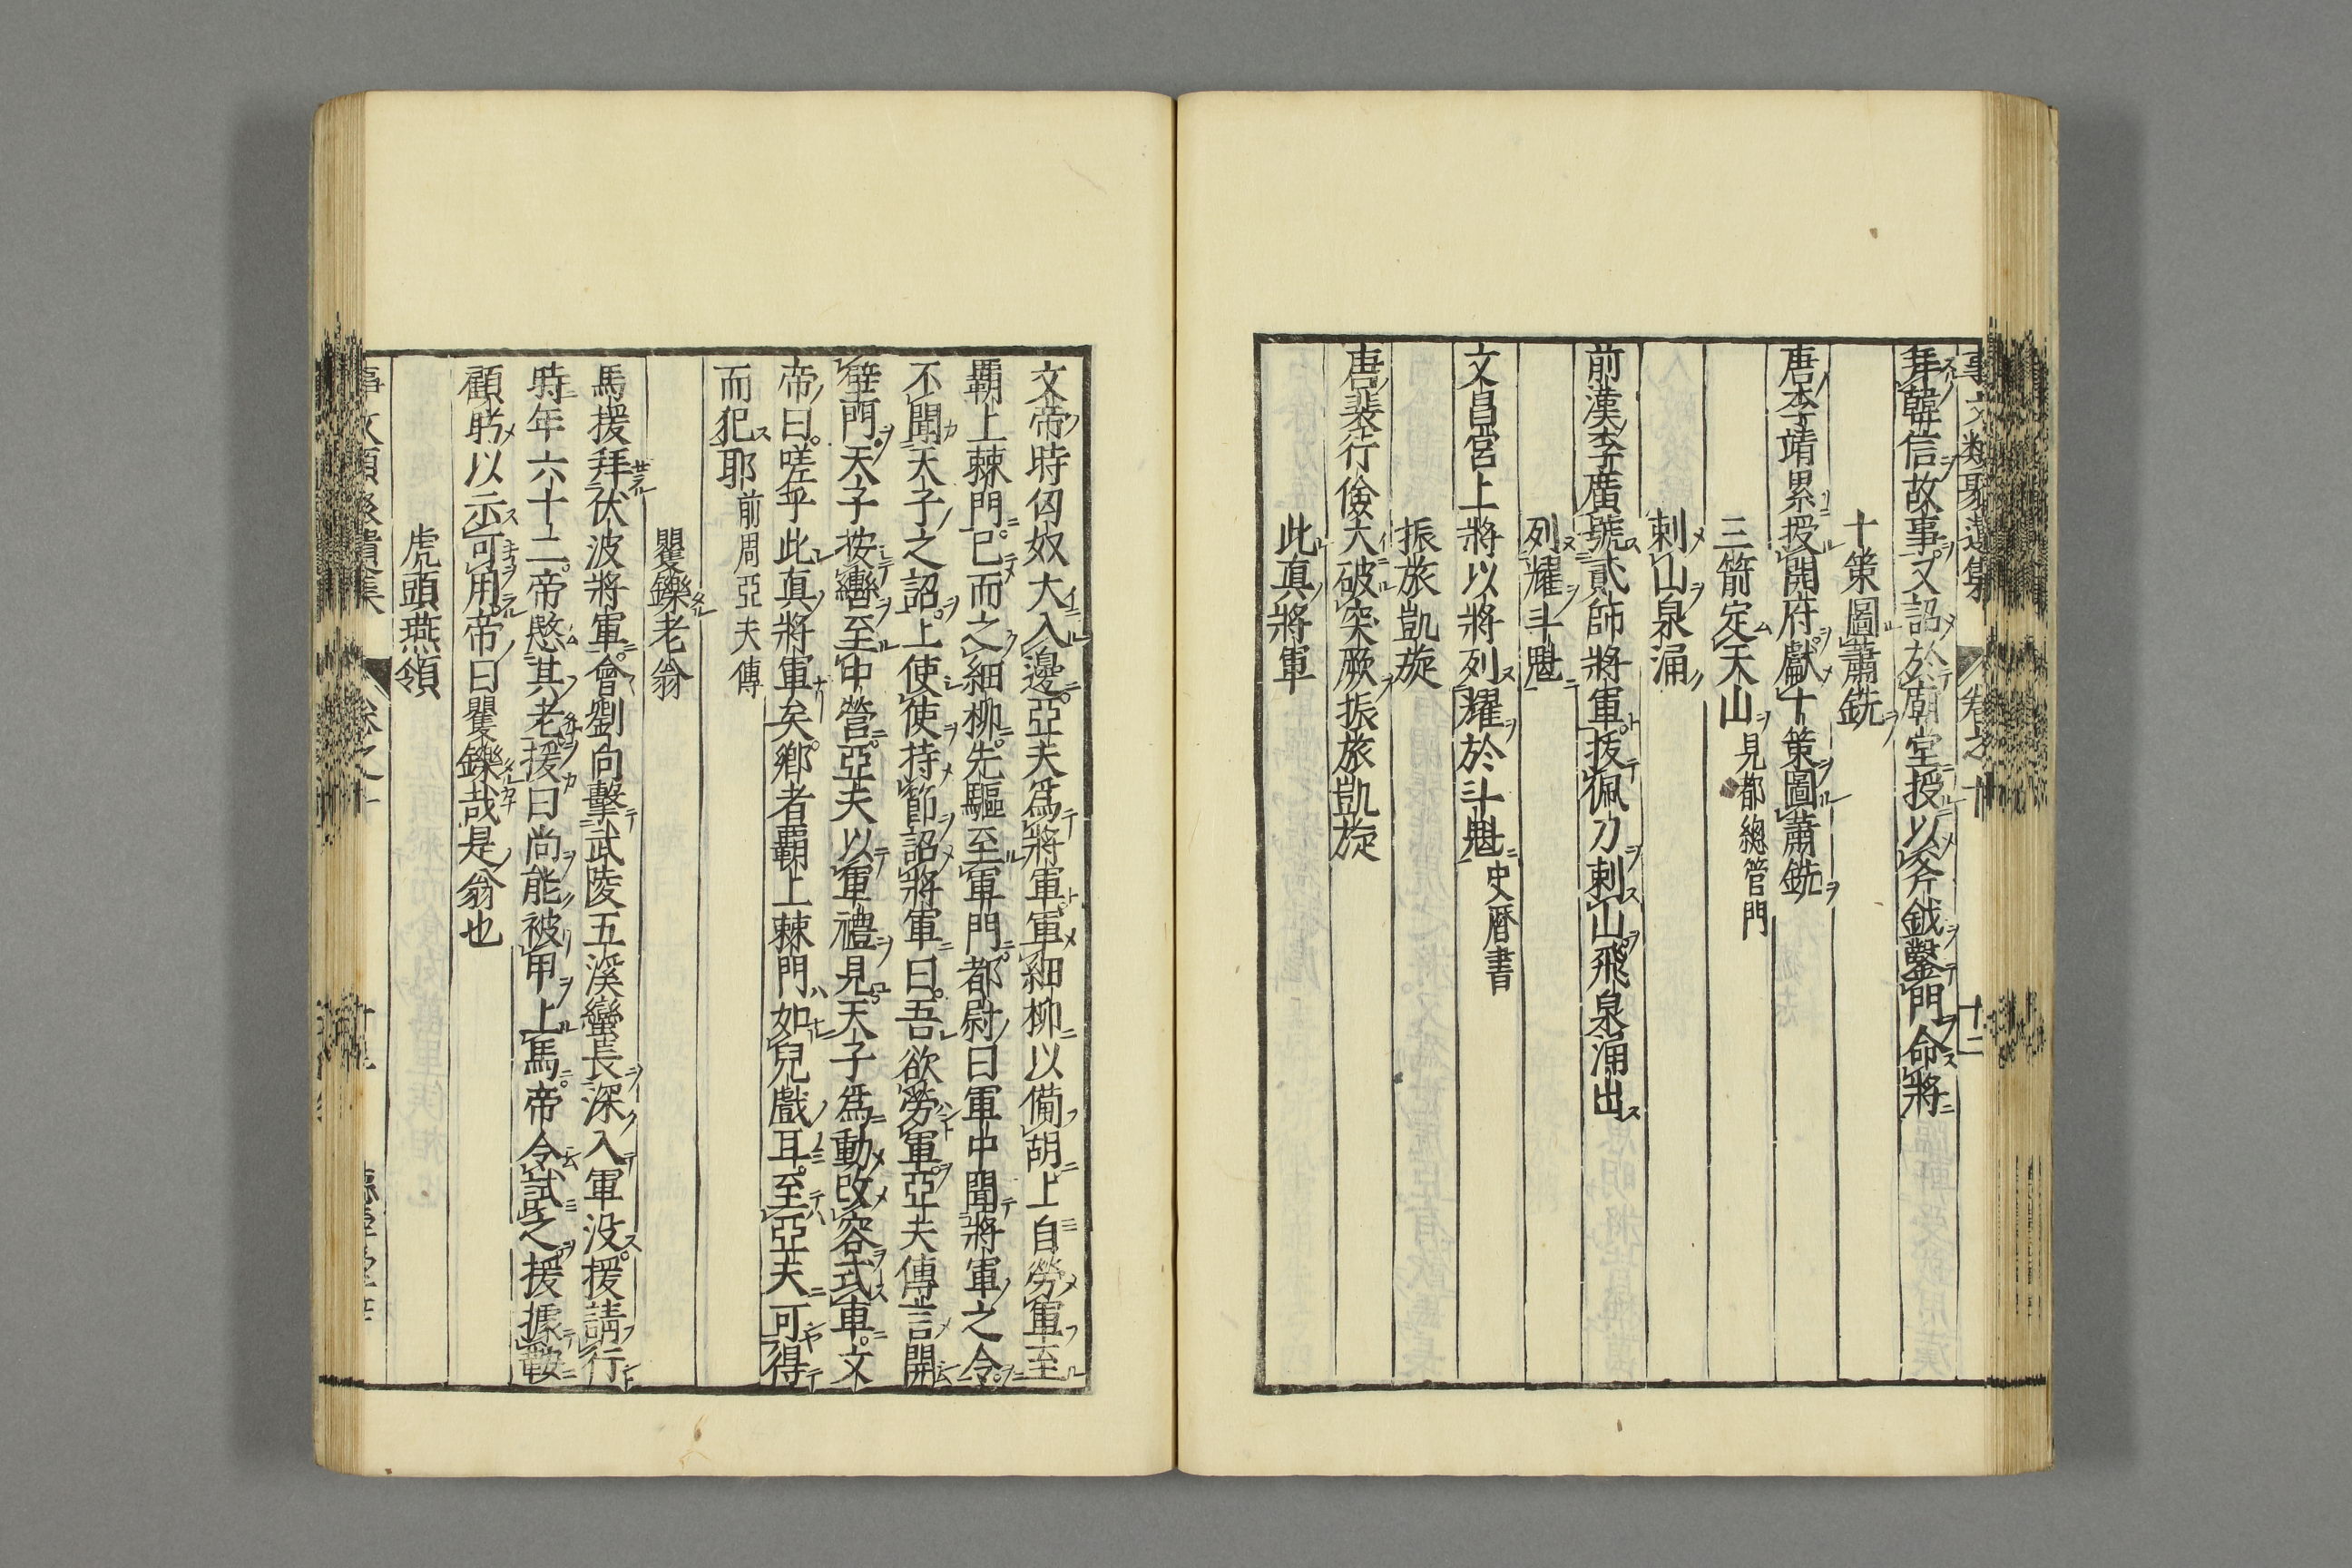 事文類聚遺集 卷之十 十二
拜韓信故事又詔於廟堂授以斧鉞鑿門命將
十策圖蕭銑
唐李靖累授開府獻十策圖蕭銑
三箭定天山見都總管門
刺山泉涌
前漢李廣號貳師將軍拔佩刀刺山飛泉涌出
列耀斗魁
文昌宮上將以將列耀於斗魁史曆書
振旅凱旋
唐裴行儉大破突厥振旅凱旋
此真將軍
文帝時匈奴大入邊亞夫爲將軍軍細柳以備胡上自勞軍至
覇上棘門已而之細柳先驅至軍門都尉曰軍中聞將軍之令
不聞天子之詔上使使持節詔將軍曰吾欲勞軍亞夫傳言開
壁門天子按轡至中營亞夫以軍禮見天子爲動改容式車文
帝曰嗟乎此真將軍矣鄉者覇上棘門如兒戲耳至亞夫可得
而犯耶前周亞夫傳
矍鑠老翁
馬援拜伏波將軍會劉向擊武陵五溪蠻長深入軍没援請行
時年六十二帝愍其老援曰尚能被甲上馬帝令試之援據鞍
顧眄以示可用帝曰矍鑠哉是翁也
虎頭燕頷